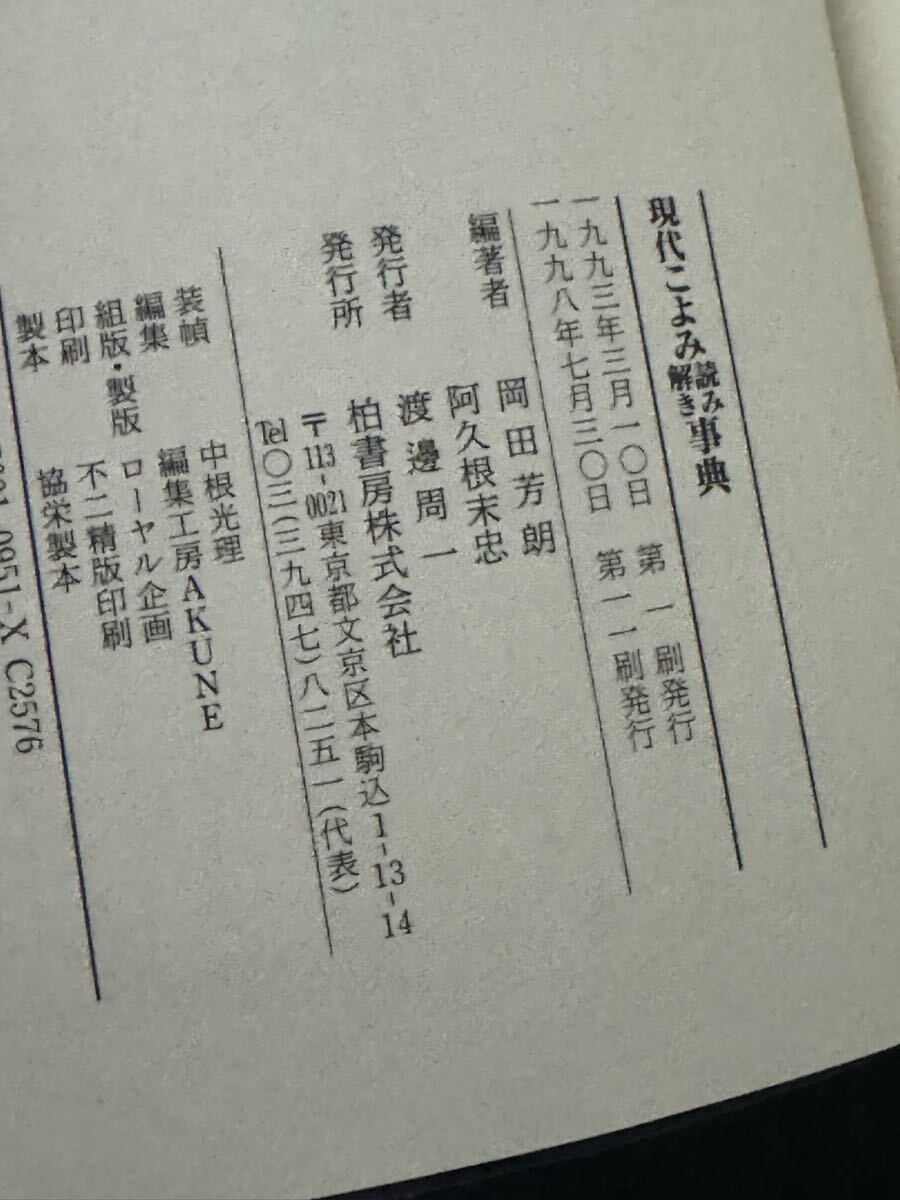 現代こよみ読み解き事典
一九九三年三月一〇日 第一刷発行
一九九八年七月三〇日 第一一刷発行
編著者 岡田芳朗
阿久根末忠
発行者 渡邊周一
発行所 柏書房株式会社
〒113-0021東京都文京区本駒込1-13-14
Tel〇三(三九四七)八二五一(代表)
装幀 中根光理
編集 編集工房AKUNE
組版・製版 ローヤル企画
印刷 不二精版印刷
製本 協栄製本
0951-X C2576